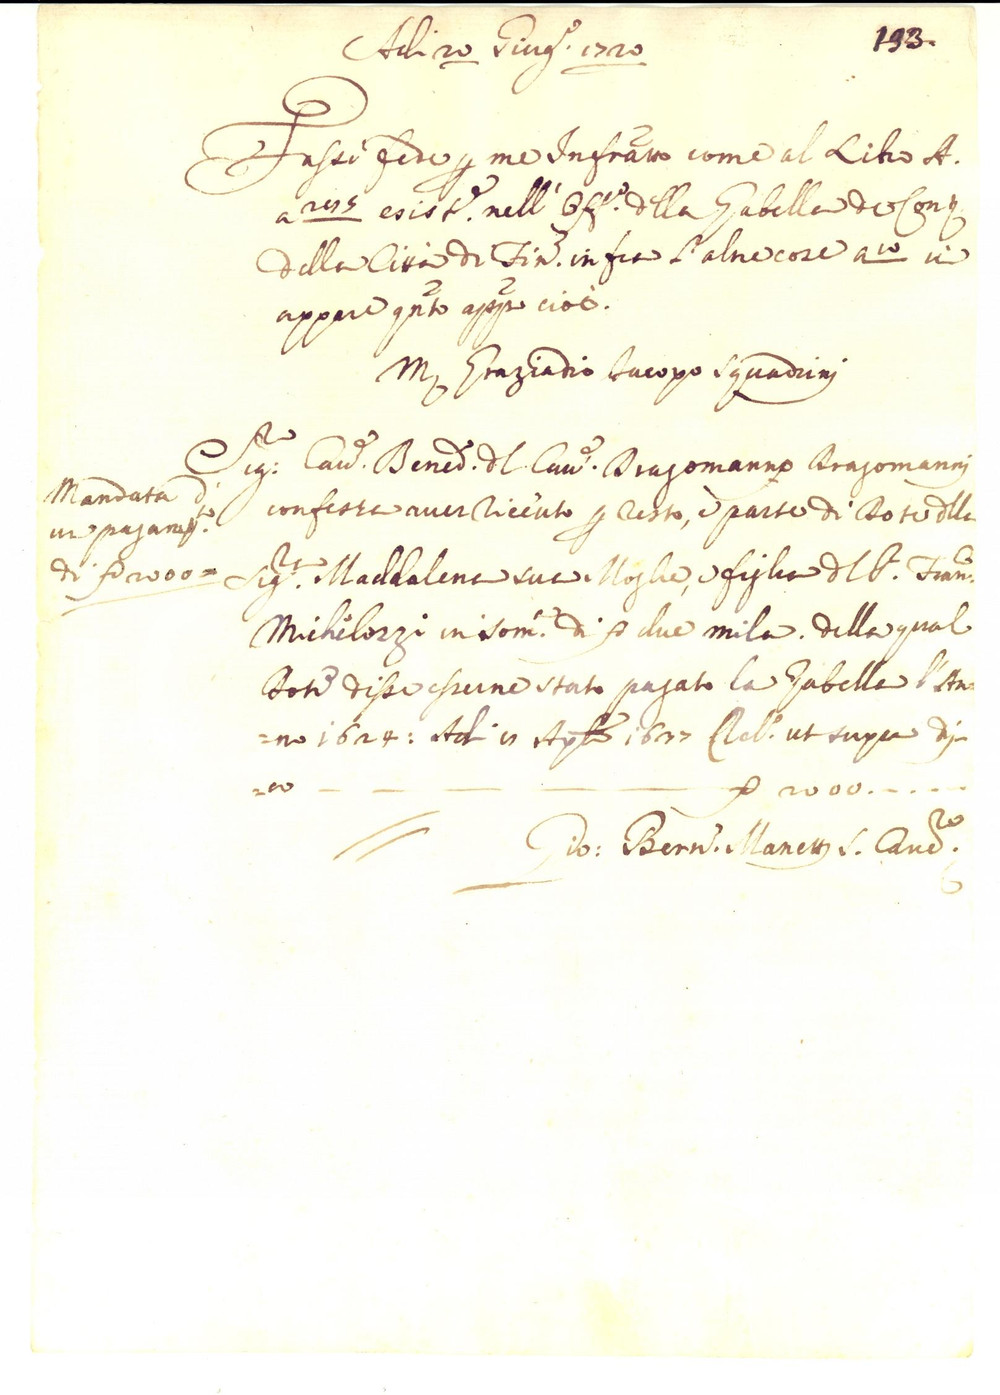 Adi 20 Giug.o 1720
193.
Fassi fede p me Infratto come al Libro A.
a 2155 esist.e nell' Off.o della Gabella de Con.
della Città di Fir.e infra l'altre cose a 10 vi
appare q.nto app.o cioè.
M. Graziadio Jacopo Squadrini
Mandata d'
un pagam.to
di fd 2000 =
Sig.re Cav.e Bened.o del Cav.e Dragomanno Dragomanni
confessa aver riceuto p resto, e parte di Dote della
Sig.ra Maddalena sua Moglie, e figlia del S. Fran.o
Michelozzi in som.a di fd due mila. della qual
Dote disse esserne stato pagato la Gabella l'An=
=no 1624: Adi 15 Aple 1627 Reb.o ut supra di=
=co — — — — — fd 2000. - - - -
Gio: Bern.o Manetti S. Canc.re